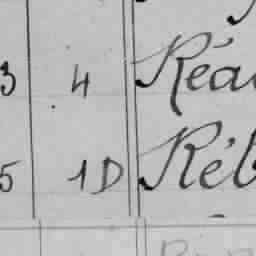 3 4 Réa
5 1D Réb